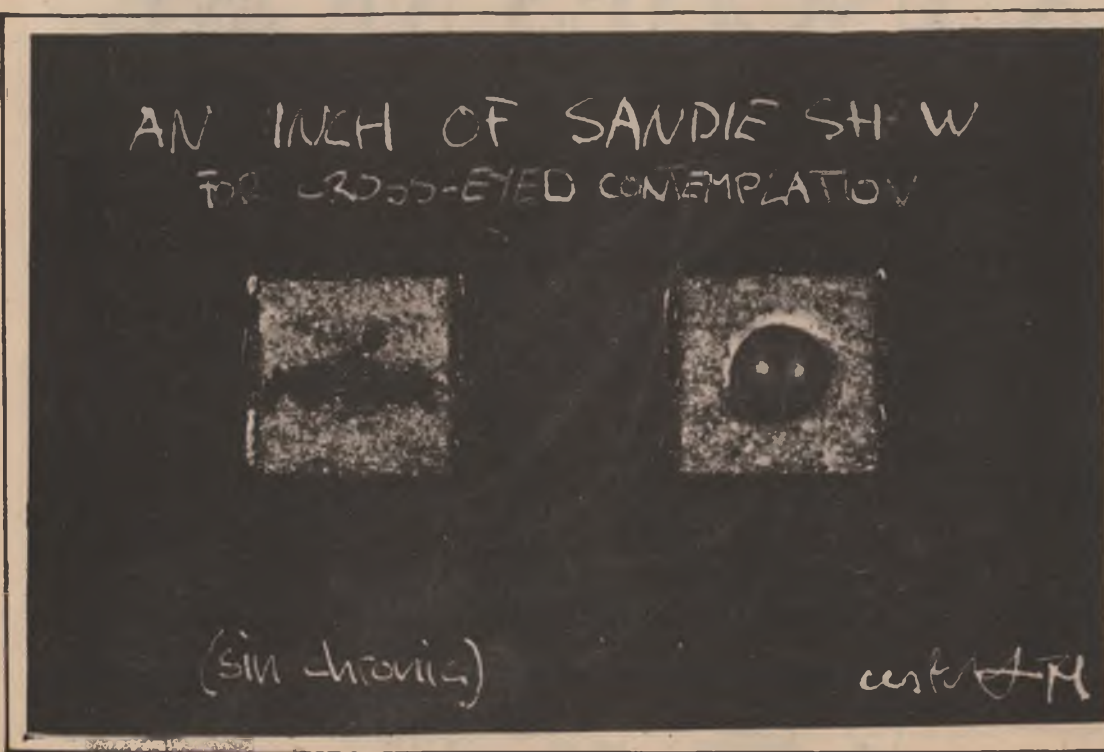 AN INCH OF SANDIE SH W
FOR CROSS-EYED CONTEMPLATION
(sin chronia)